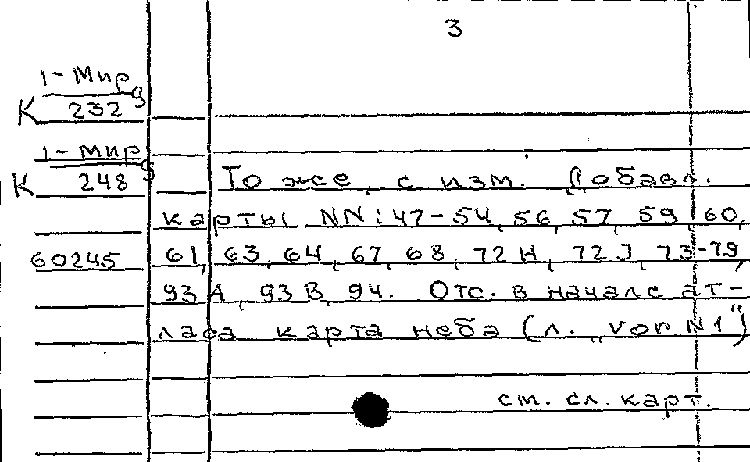 3
1-Мир 9
К 232
1-Мир 9
К 248
То же, с изм. Добавл.
карты NN: 47-54, 56, 57, 59, 60,
60245
61, 63, 64, 67, 68, 72H, 72J, 73-79,
93A, 93B, 94. Отс. в начале ат-
ласа карта неба (л. "vor N1")
см. сл. карт.